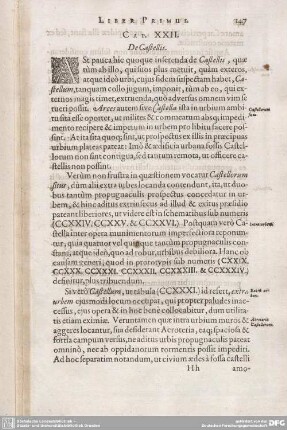 LIBER PRIMUS. 147
CAP. XXII.
De Castellis.
AT pauca hic quoque inserenda de Castellis, quæ
tum ab illo, qui suos plus metuit, quàm exteros,
atque ideò urbi, cujus fidem suspectam habet, Ca-
stellum, tanquam collo jugum, imponit, tùm ab eo, qui ex-
ternos magis timet, extruenda, quò adversus omnem vim se-
curi possit. Arces autem sive Castella ista in urbium ambi-
tu sita esse oportet, ut milites & commeatum absq; impedi-
mento recipere & impetum in urbem pro libitu facere pos-
sint.
urbium plateas pateat: Imò & ædificia urbana fosso Castel-
lorum non sint contigua, sed tantum remota, ut officere ca-
stellis non possint.
Verùm non frustra in quæstionem vocatur Castellorum
situs, dum alii extra urbes locanda contendunt, ita, ut duo-
bus tantùm propugnaculis prospectus concedatur in ur-
bem, & hinc aditus extrinsecus ad illud & exitus præsidio
pateant liberiores, ut videre est in schematibus sub numeris
(CCXXIV. CCXXV. & CCXXVI.) Postquam verò Ca-
stella inter opera munitionum imperfectiora reponun-
tur, quia quatuor vel quinque tantùm propugnaculis con-
stant, atque ideò, quoad robur, urbibus debiliora. Hanc ob
causam ejusmodi, quod in prototypis sub numeris
CCXXX. CCXXXI. CCXXXII. CCXXXIII. & CCXXXIV.)
definitur, plus tribuendum.
Si verò Castellum, ut tabula (CCXXXI.) id refert, extra
urbem ejusmodi locum occupat, qui propter paludes inac-
cessus, ejus opera & in hoc bene collocabitur, dum mili-
tatis etiam eximiæ. Veruntamen quæ intra urbium muros &
aggeres locantur, sua desiderant Acroteria, taq; spaciosa &
fortia campum versus, ne aditus urbis propugnaculis pateat
omninò, nec ab oppidanorum tormentis possit impediri.
Ad hoc separatim notandum, ut civium ædes à fossa castelli
Hh amo-